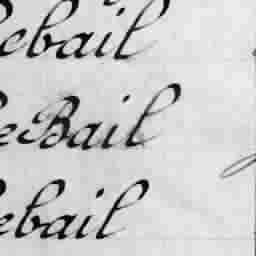 ebail
eBail
ebail